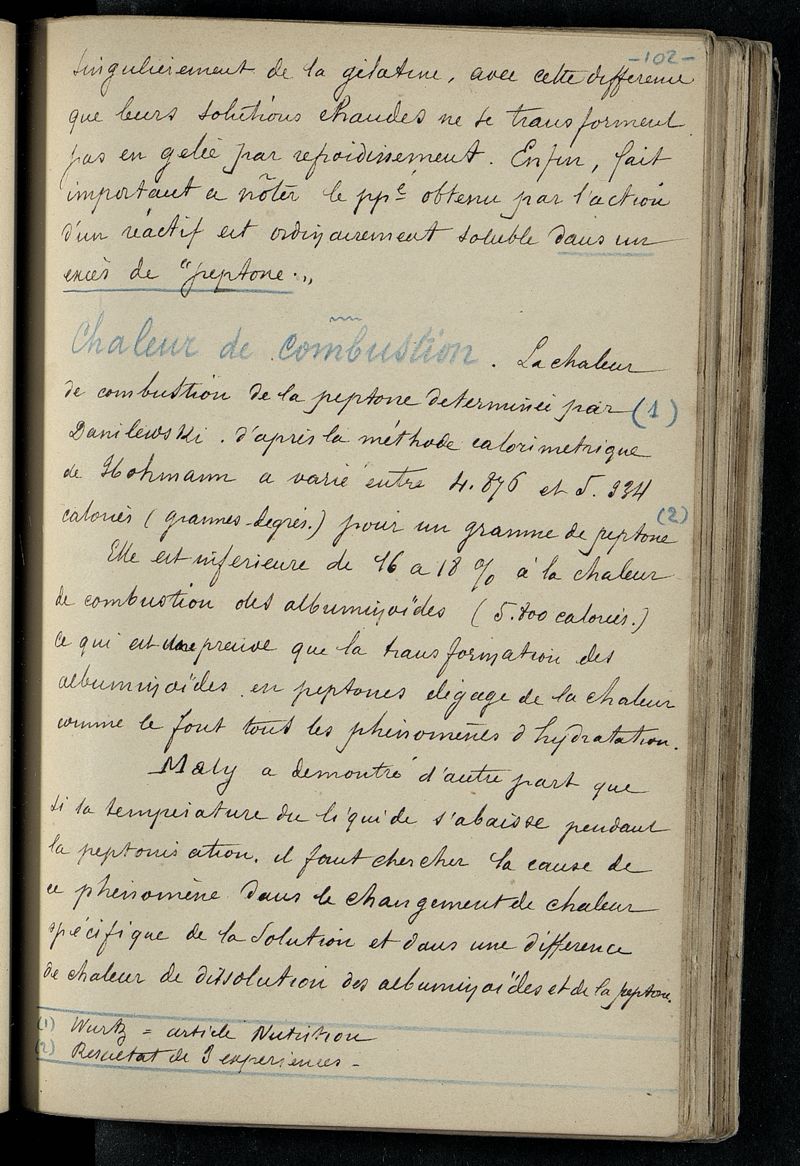 -102-
singulièrement de la gélatine, avec cette difference
que leurs solutions chaudes ne se transforment
pas en gelée par refroidissement. Enfin, fait
important a nôter le ppé obtenu par l'action
d'un réactif est ordinairement soluble dans un
excès de "peptone.„
Chaleur de combustion. La chaleur
de combustion de la peptone determinée par (1)
Danilewski. d'après la méthode calorimetrique
de Hohmann a varié entre 4.876 et 5.334
calories (grammes-degrés.) pour un gramme de peptone (2)
Elle est inferieure de 16 a 18 % à la chaleur
de combustion des albuminoïdes (5.800 calories.)
ce qui est une preuve que la transformation des
albuminoïdes en peptones dégage de la chaleur
comme le font tous les phénomènes d'hydratation.
Maly a demontré d'autre part que
si la temperature du liquide s'abaisse pendant
la peptonisation. il faut chercher la cause de
ce phénomène dans le changement de chaleur
spécifique de la Solution et dans une différence
de chaleur de dissolution des albuminoïdes et de la peptone.
(1) Wurtz = article Nutrition
(2) Resultat de 3 experiences -